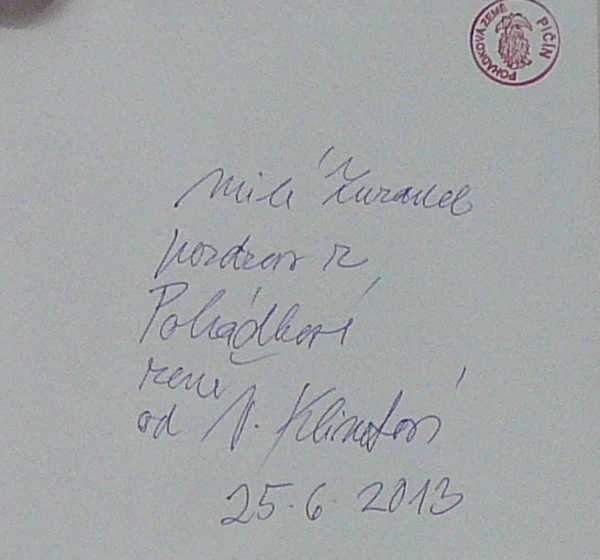 POHÁDKOVÁ ZEMĚ PIČÍN
Milé
pozdrav z
Pohádkové
země
od V. Klimtové
25.6.2013